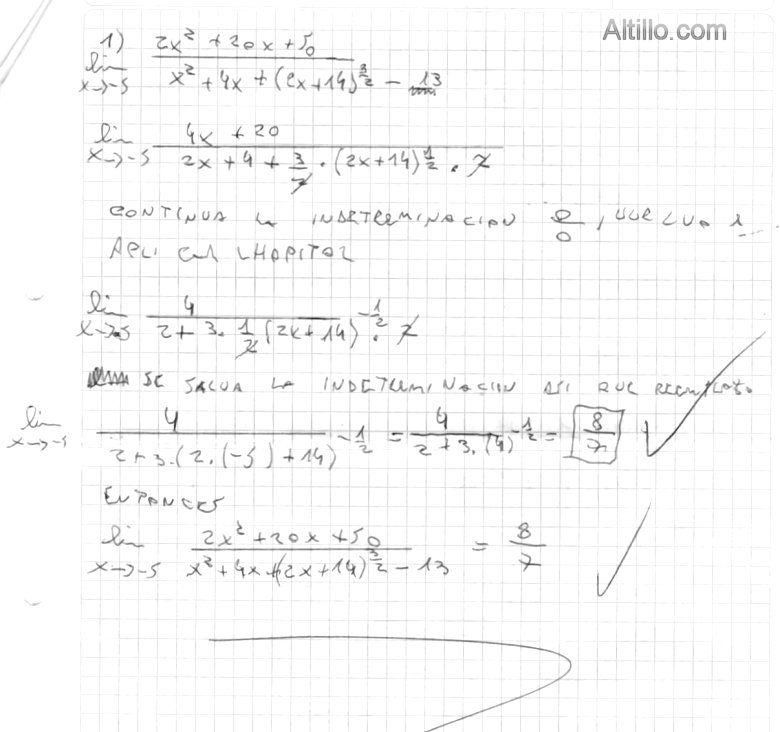 Altillo.com
1) lim x→-5 (2x² + 20x + 50) / (x² + 4x + (2x+14)^(3/2) - 13)
lim x→-5 (4x + 20) / (2x + 4 + 3/2 · (2x+14)^(1/2) · 2)
CONTINUA LA INDETERMINACION 0/0, VUELVO A
APLICAR LHOPITAL
lim x→-5 4 / (2 + 3 · 1/2 (2x+14)^(-1/2) · 2)
SE SALVA LA INDETERMINACION ASI QUE REEMPLAZO
lim x→-5 4 / (2 + 3 · (2 · (-5) + 14)^(-1/2)) = 4 / (2 + 3 · (4)^(-1/2)) = 8/7
ENTONCES
lim x→-5 (2x² + 20x + 50) / (x² + 4x + (2x+14)^(3/2) - 13) = 8/7